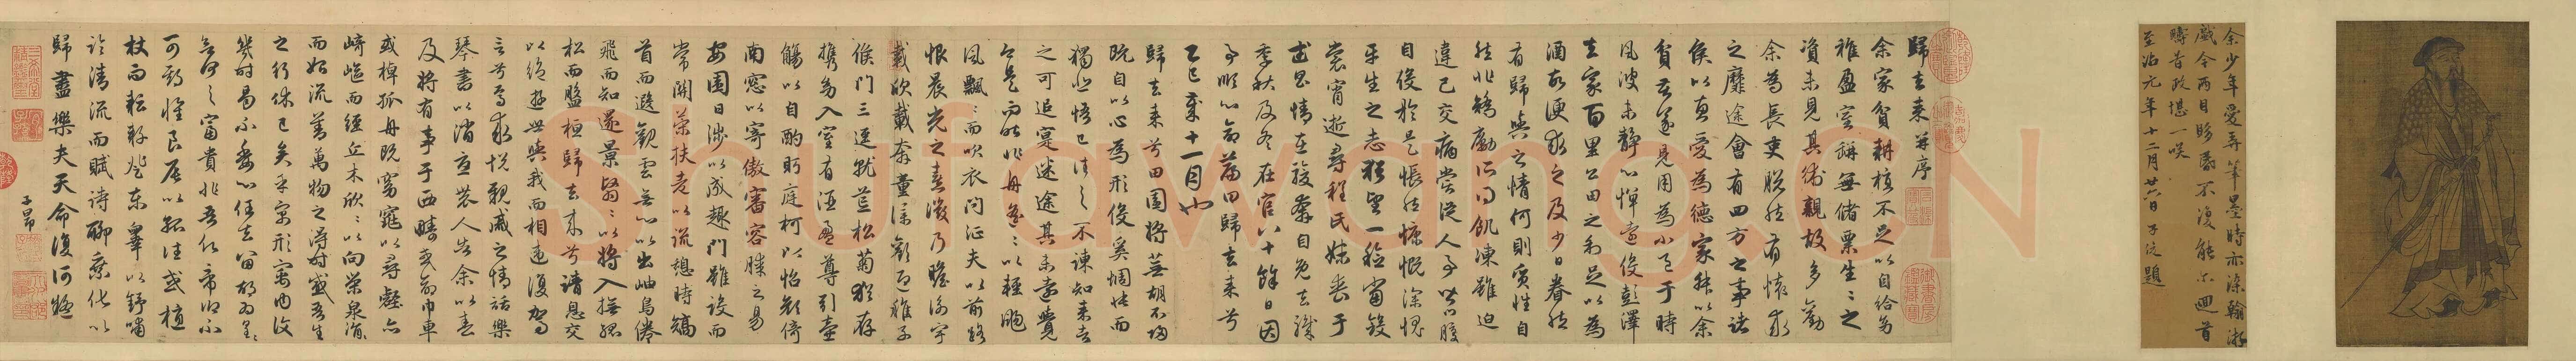 余少年愛弄筆墨時亦染翰游
戲今兩目眵昏不復能尒迴首
疇昔政堪一唉
至治元年十二月廿六日子俊題
歸去来并序
余家貧耕植不足以自給幼
稚盈室缾無儲粟生〻之
資未見其術親故多勸
余為長吏脫然有懷求
之靡途會有四方之事諸
侯以惠愛為德家叔以余
貧苦遂見用為小邑于時
風波未靜心憚遠役彭澤
去家百里公田之利足以為
酒故便求之及少日眷然
有歸與之情何則質性自
然非矯勵所得飢凍雖迫
違己交病嘗從人事皆口腹
自役於是悵然慷慨深愧
平生之志猶望一稔當斂
裳宵逝尋程氏妹喪于
武昌情在駿奔自免去職
季秋及冬在官八十餘日因
事順心命篇曰歸去来兮
乙巳歲十一月也
歸去来兮田園將蕪胡不歸
既自以心為形役奚惆悵而
獨悲悟已往之不諫知来者
之可追寔迷途其未遠覺
今是而昨非舟遙〻以輕颺
風飄〻而吹衣問征夫以前路
恨晨光之熹微乃瞻衡宇
載欣載奔童僕歡迎稚子
候門三逕就荒松菊猶存
攜幼入室有酒盈尊引壺
觴以自酌眄庭柯以怡顏倚
南窓以寄傲審容膝之易
安園日涉以成趣門雖設而
常關策扶老以流憩時矯
首而遐觀雲無心以出岫鳥倦
飛而知還景翳〻以將入撫孤
松而盤桓歸去来兮請息交
以絕遊世與我而相違復駕
言兮焉求悅親戚之情話樂
琴書以消憂農人告余以春
及將有事于西疇或命巾車
或棹孤舟既窈窕以尋壑亦
崎嶇而經丘木欣〻以向榮泉涓〻
而始流善萬物之得時感吾生
之行休已矣乎寓形宇內復
幾時曷不委心任去留胡為遑〻
欲何之富貴非吾願帝鄉不
可期懷良辰以孤往或植
杖而耘耔登東皋以舒嘯
臨清流而賦詩聊乘化以
歸盡樂夫天命復何疑
子昂